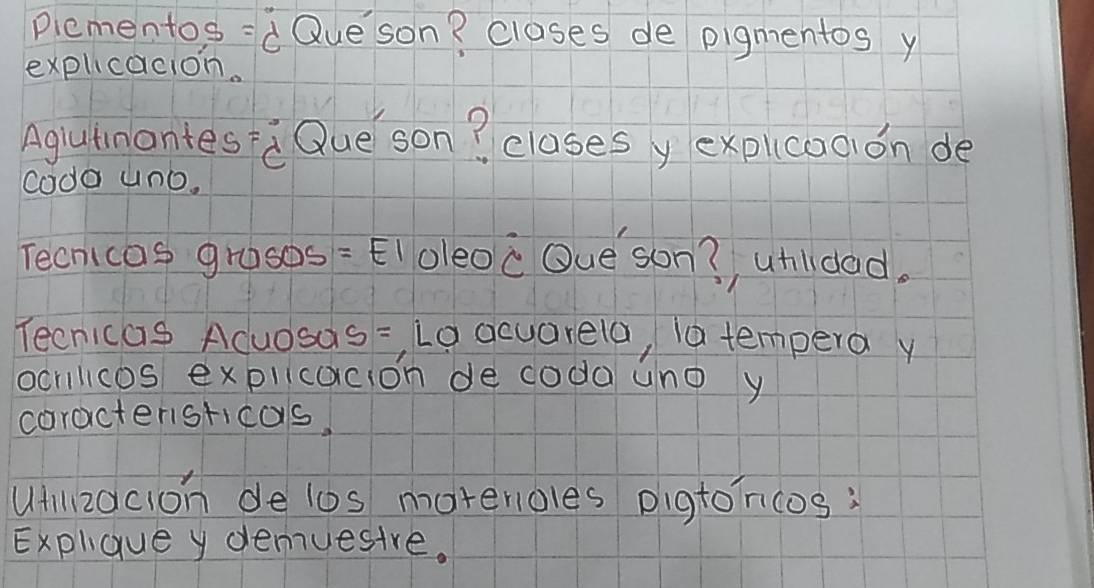 Picmentos = ¿Qué son? clases de pigmentos y
explicación.
Aglutinantes = ¿Qué son? clases y explicación de
cada uno.
Tecnicas grasas = El oleo ¿Qué son?, utilidad.
Tecnicas Acuosas = La acuarela, la tempera y
acrilicos explicación de cada uno y
caracteristicas.
Utilización de los materiales pigtóricos:
Explique y demuestre.